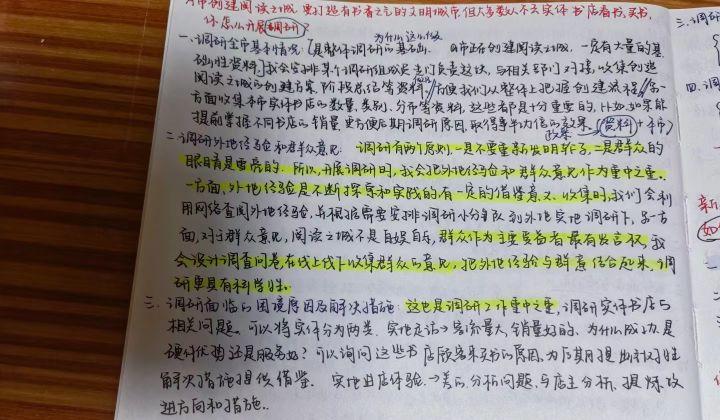 市创建阅读之城,要打造有书香之气的文明城市,但大多数人不去实体书店看书、买书,
你怎么开展调研?
为什么这么做
一、调研全市基本情况:(是整体调研的基础。A市正在创建阅读之城,一定有大量的基
础性资料,)我会安排某个调研组成员专门负责这块,与相关部门对接,收集创建
阅读之城的创建方案、阶段总结等资料,方便我们从整体上把握创建流程,另一
方面收集本市实体书店的数量、类别、分布等资料,这些都是十分重要的,比如如果能
提前掌握不同书店的销量,更方便后期调研原因,取得事半功倍的效果。
政策 (资料+本市)
二、调研外地经验和群众意见:调研有两个原则,一是不要重新发明轮子,二是群众的
眼睛是雪亮的。所以,开展调研时,我会把外地经验和群众意见作为重中之重。
一方面,外地经验是不断探索和实践的,有一定的借鉴意义,收集时,我们会利
用网络查阅外地经验,并根据需要安排调研小分队到外地实地调研下,另一方
面,对于群众意见,阅读之城不是自娱自乐,群众作为主要受益者最有发言权,我
会设计调查问卷,在线上线下收集群众的意见,把外地经验与群意结合起来,调
研更具有科学性。
三、调研面临的困境原因及解决措施:这也是调研工作重中之重,调研实体书店与
相关问题。可以将实体分为两类,实地走访→客流量大、销量好的,为什么成功,是
硬件优势还是服务好?可以询问这些书店顾客来买书的原因,为后期提出针对性
解决措施提供借鉴。实地进店体验→差的,分析问题,与店主分析、提炼改
进方向和措施。
三、调研
四、调